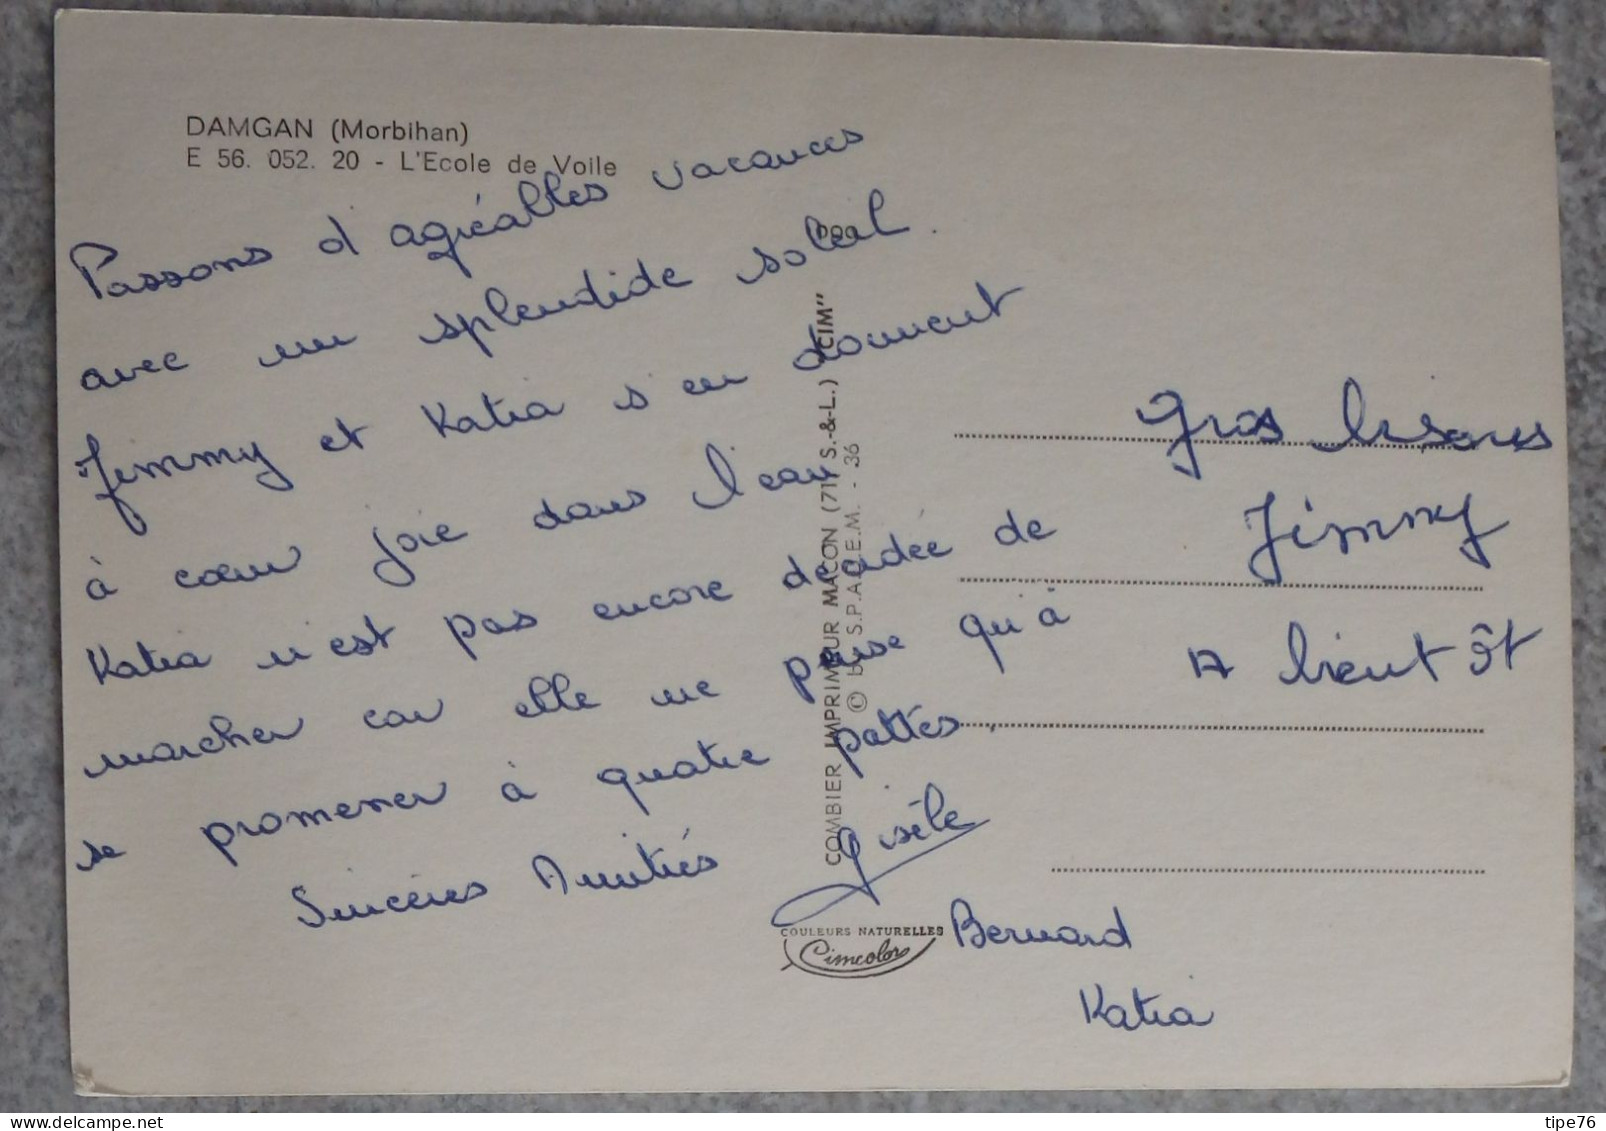 DAMGAN (Morbihan)
E 56. 052. 20 - L'Ecole de Voile
Passons d'agréables vacances
avec un splendide soleil.
Jimmy et Katia s'en donnent
à coeur joie dans l'eau
Katia n'est pas encore décidée de
marcher car elle ne pense qu'à
se promener à quatre pattes.
Sincères Amitiés Gisèle
Bernard
Katia
Gros bisous
Jimmy
A bientôt
COMBIER IMPRIMEUR MACON (71 S.-&-L.) "CIM"
© by S.P.A.D.E.M. - 36
COULEURS NATURELLES
Cimcolor
tipe76